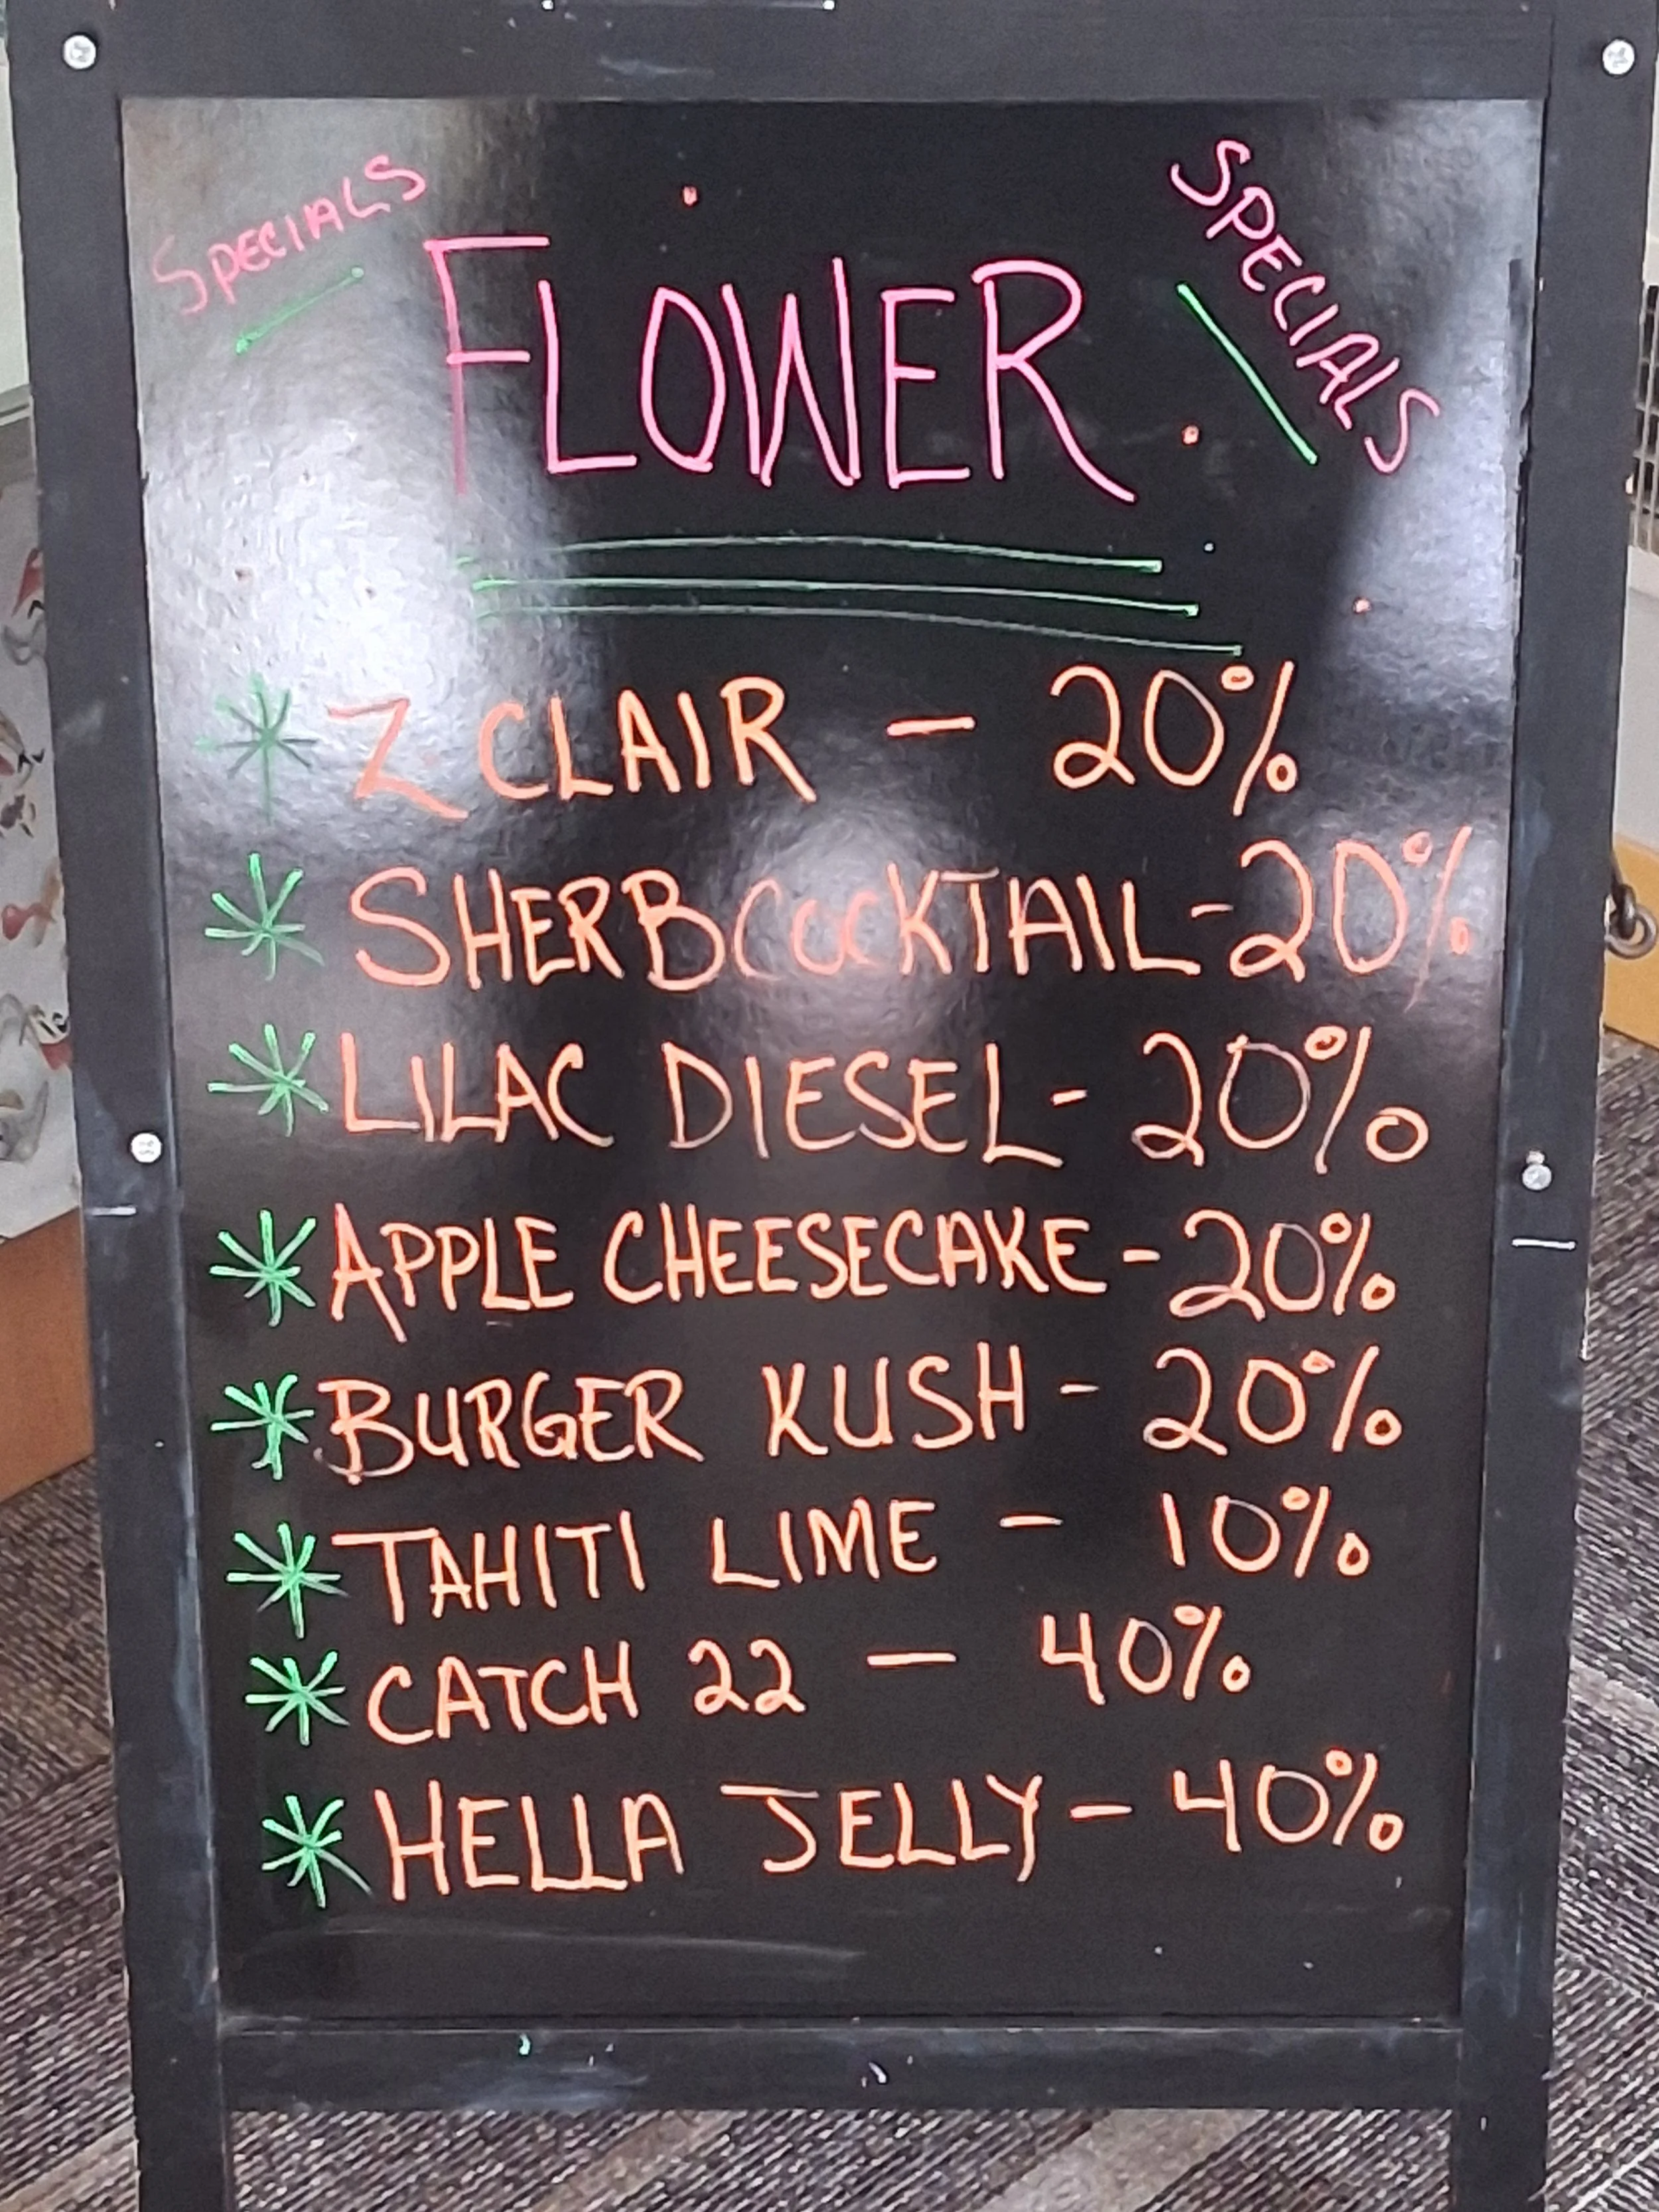 SPECIALS
SPECIALS
FLOWER
* Z CLAIR - 20%
* SHERBCOCKTAIL - 20%
* LILAC DIESEL - 20%
* APPLE CHEESECAKE - 20%
* BURGER KUSH - 20%
* TAHITI LIME - 10%
* CATCH 22 - 40%
* HELLA JELLY - 40%